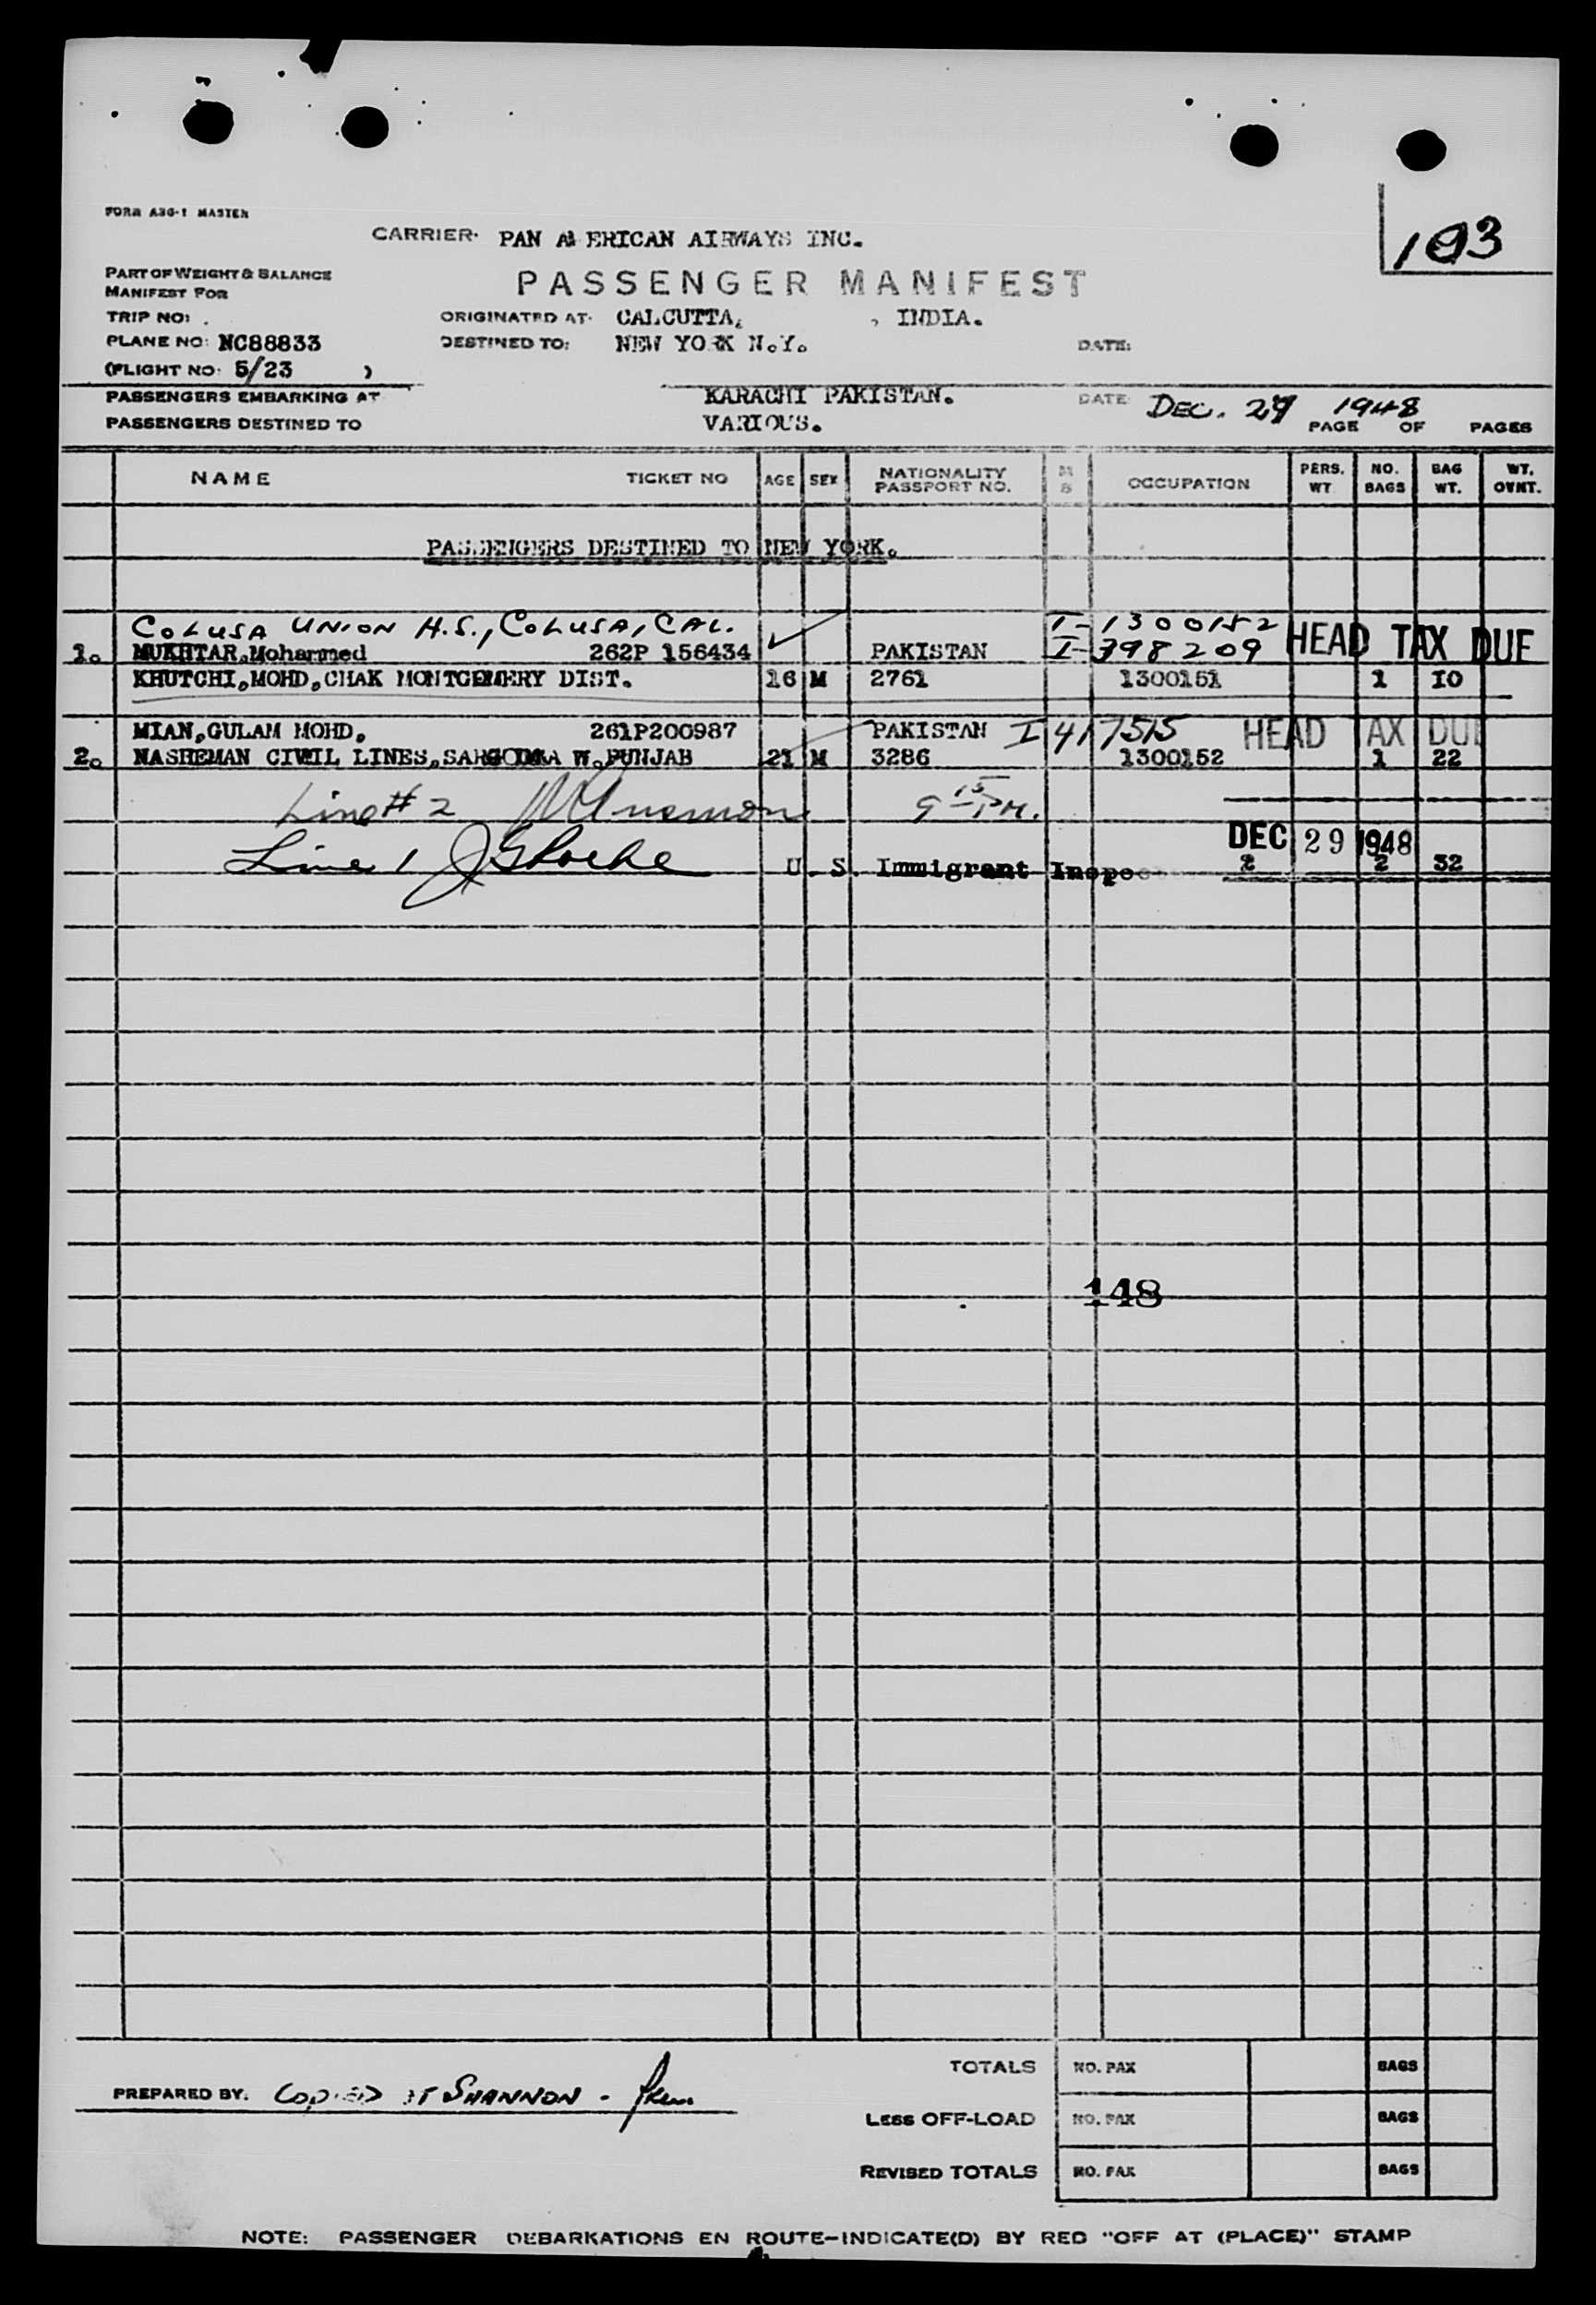 FORM A36-1 MASTER
CARRIER· PAN AMERICAN AIRWAYS INC.
103
PART OF WEIGHT & BALANCE
MANIFEST FOR
PASSENGER MANIFEST
TRIP NO:
ORIGINATED AT· CALCUTTA, , INDIA.
PLANE NO: NC88833
DESTINED TO: NEW YORK N.Y.
DATE:
(FLIGHT NO: 5/23 )
PASSENGERS EMBARKING AT KARACHI PAKISTAN. DATE DEC. 29 1948
PASSENGERS DESTINED TO VARIOUS. PAGE OF PAGES
NAME TICKET NO AGE SEX NATIONALITY PASSPORT NO. OCCUPATION PERS. WT NO. BAGS BAG WT. WT. OVNT.
PASSENGERS DESTINED TO NEW YORK.
COLUSA UNION H.S., COLUSA, CAL. I-1300152
1. MUKHTAR,Mohammed 262P 156434 PAKISTAN I-398209 HEAD TAX DUE
KHUTCHI,MOHD,CHAK MONTGEMERY DIST. 16 M 2761 1300151 1 10
MIAN,GULAM MOHD. 261P200987 PAKISTAN I 417515 HEAD TAX DUE
2. NASHEMAN CIVIL LINES,SARGODKA W.PUNJAB 21 M 3286 1300152 1 22
Line # 2 9 15 PM.
DEC 29 1948
Line 1 U. S. Immigrant Inspec 2 2 32
148
TOTALS NO. PAX BAGS
PREPARED BY. COPIED AT SHANNON -
LESS OFF-LOAD NO. PAX BAGS
REVISED TOTALS NO. PAX BAGS
NOTE: PASSENGER DEBARKATIONS EN ROUTE-INDICATE(D) BY RED "OFF AT (PLACE)" STAMP